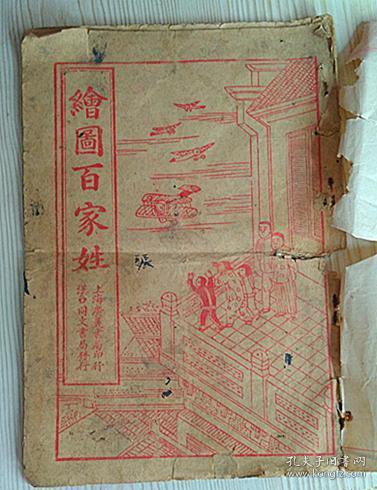 繪圖百家姓
上海廣益書局印行
漢口同文書局發行
孔夫子旧书网
kongfz.com